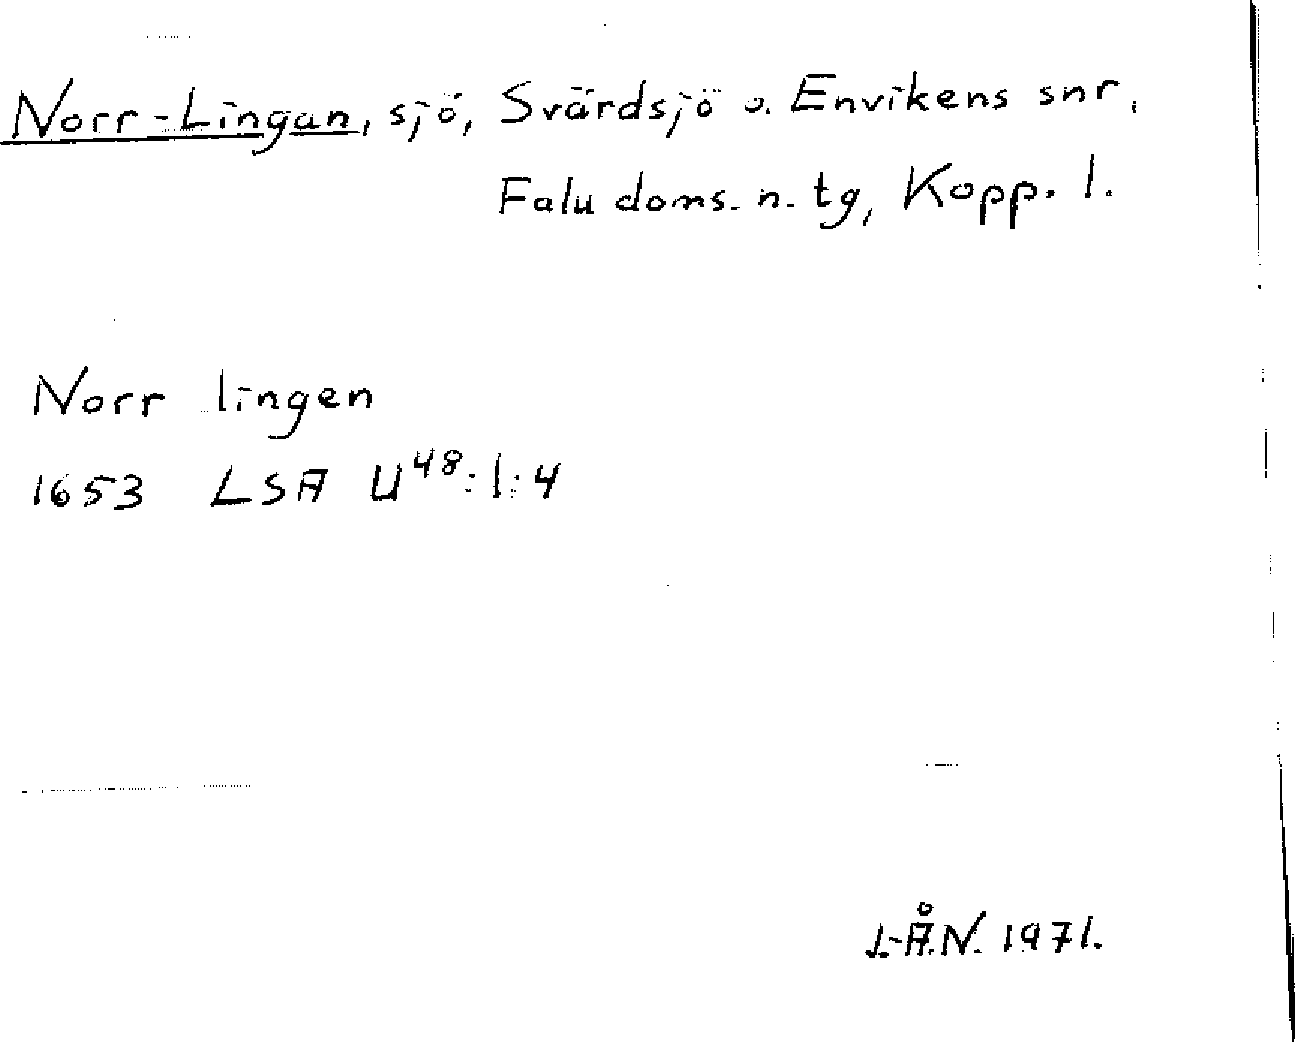 Norr-Lingan, sjö, Svärdsjö o. Envikens snr,
Falu doms. n. tg, Kopp. l.
Norr lingen
1653 LSA U48:1:4
J.-Å.N. 1971.